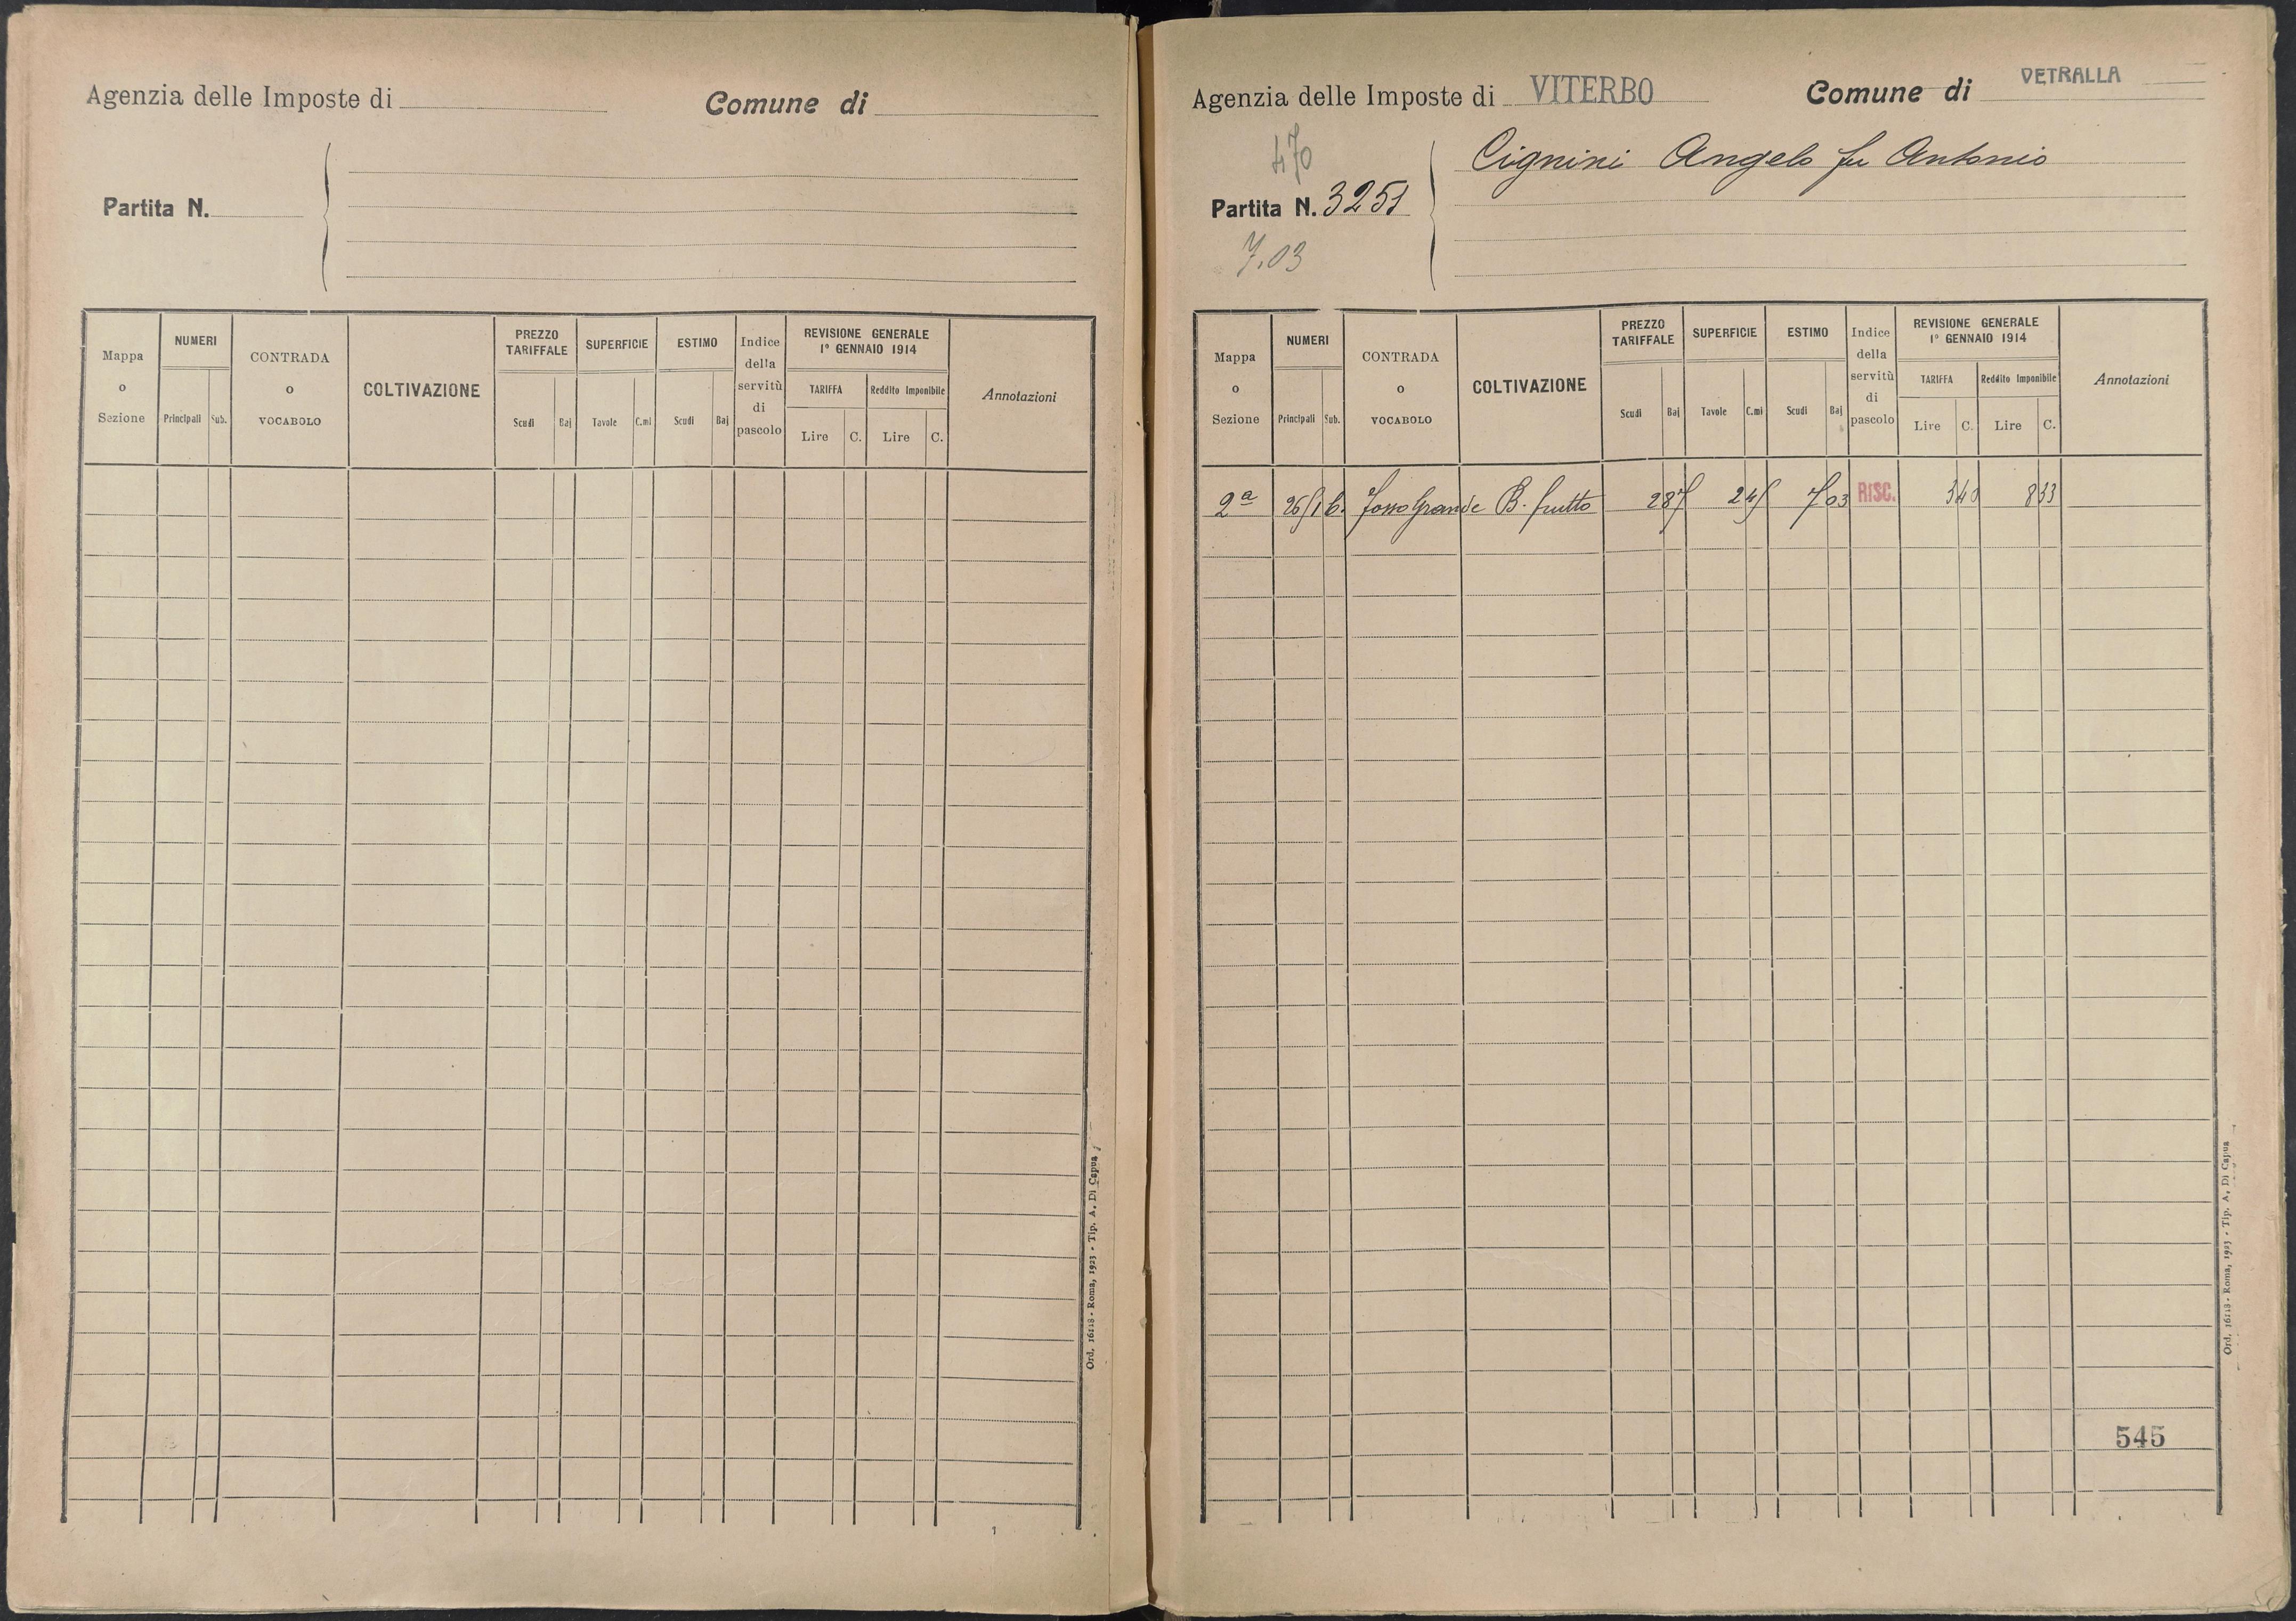 Agenzia delle Imposte di
Comune di
Partita N.
Mappa o Sezione
NUMERI
Principali Sub.
CONTRADA o VOCABOLO
COLTIVAZIONE
PREZZO TARIFFALE
Scudi Baj
SUPERFICIE
Tavole C.mi
ESTIMO
Scudi Baj
Indice della servitù di pascolo
REVISIONE GENERALE
1° GENNAIO 1914
TARIFFA Reddito Imponibile
Lire C. Lire C.
Annotazioni
Ord. 16118 - Roma, 1923 - Tip. A. Di Capua
Agenzia delle Imposte di VITERBO
Comune di VETRALLA
470
Partita N. 3251
7.03
Cignini Angelo fu Antonio
Mappa o Sezione
NUMERI
Principali Sub.
CONTRADA o VOCABOLO
COLTIVAZIONE
PREZZO TARIFFALE
Scudi Baj
SUPERFICIE
Tavole C.mi
ESTIMO
Scudi Baj
Indice della servitù di pascolo
REVISIONE GENERALE
1° GENNAIO 1914
TARIFFA Reddito Imponibile
Lire C. Lire C.
Annotazioni
2ª Fosso Grande B. frutto 287 245 703 RISC. 340 833
545
Ord. 16118 - Roma, 1923 - Tip. A. Di Capua